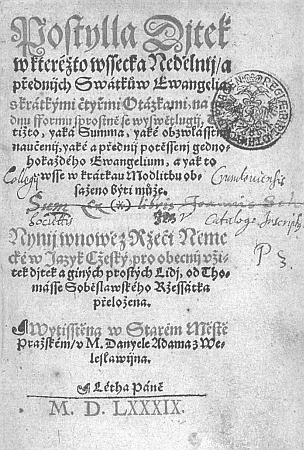 Postylla Djtek
w kteréžto wssecka Nedělnij/ a
přednijch Swátkůw Ewangelia
s krátkými čtyřmi Otázkami/ na
dnu fformu sprostně se wyswětlugij,
tižto, yaká Summa, yaké obzwlásstnj
naučenij, yaké a přednij potěssenj gedno-
hokaždého Ewangelium, a yak to
Collegij wsse w krátkau Modlitbu ob- Crumloviensis
saženo býti může.
Sum Ex (*) libris Joannis
Societatis Catalogo Inscript9
Nynij w nowě z Řeči Něme
cké w Jazyk Cžeský/ pro obecný vži-
tek djtek a giných prostých Lidj, od Tho-
másse Soběslawského Ržessátka
přeložena.
Wytisstěna w Starém Městě
Pražském/ v M. Danyele Adama z We-
leslawijna.
Létha Páně
M. D. LXXXIX.